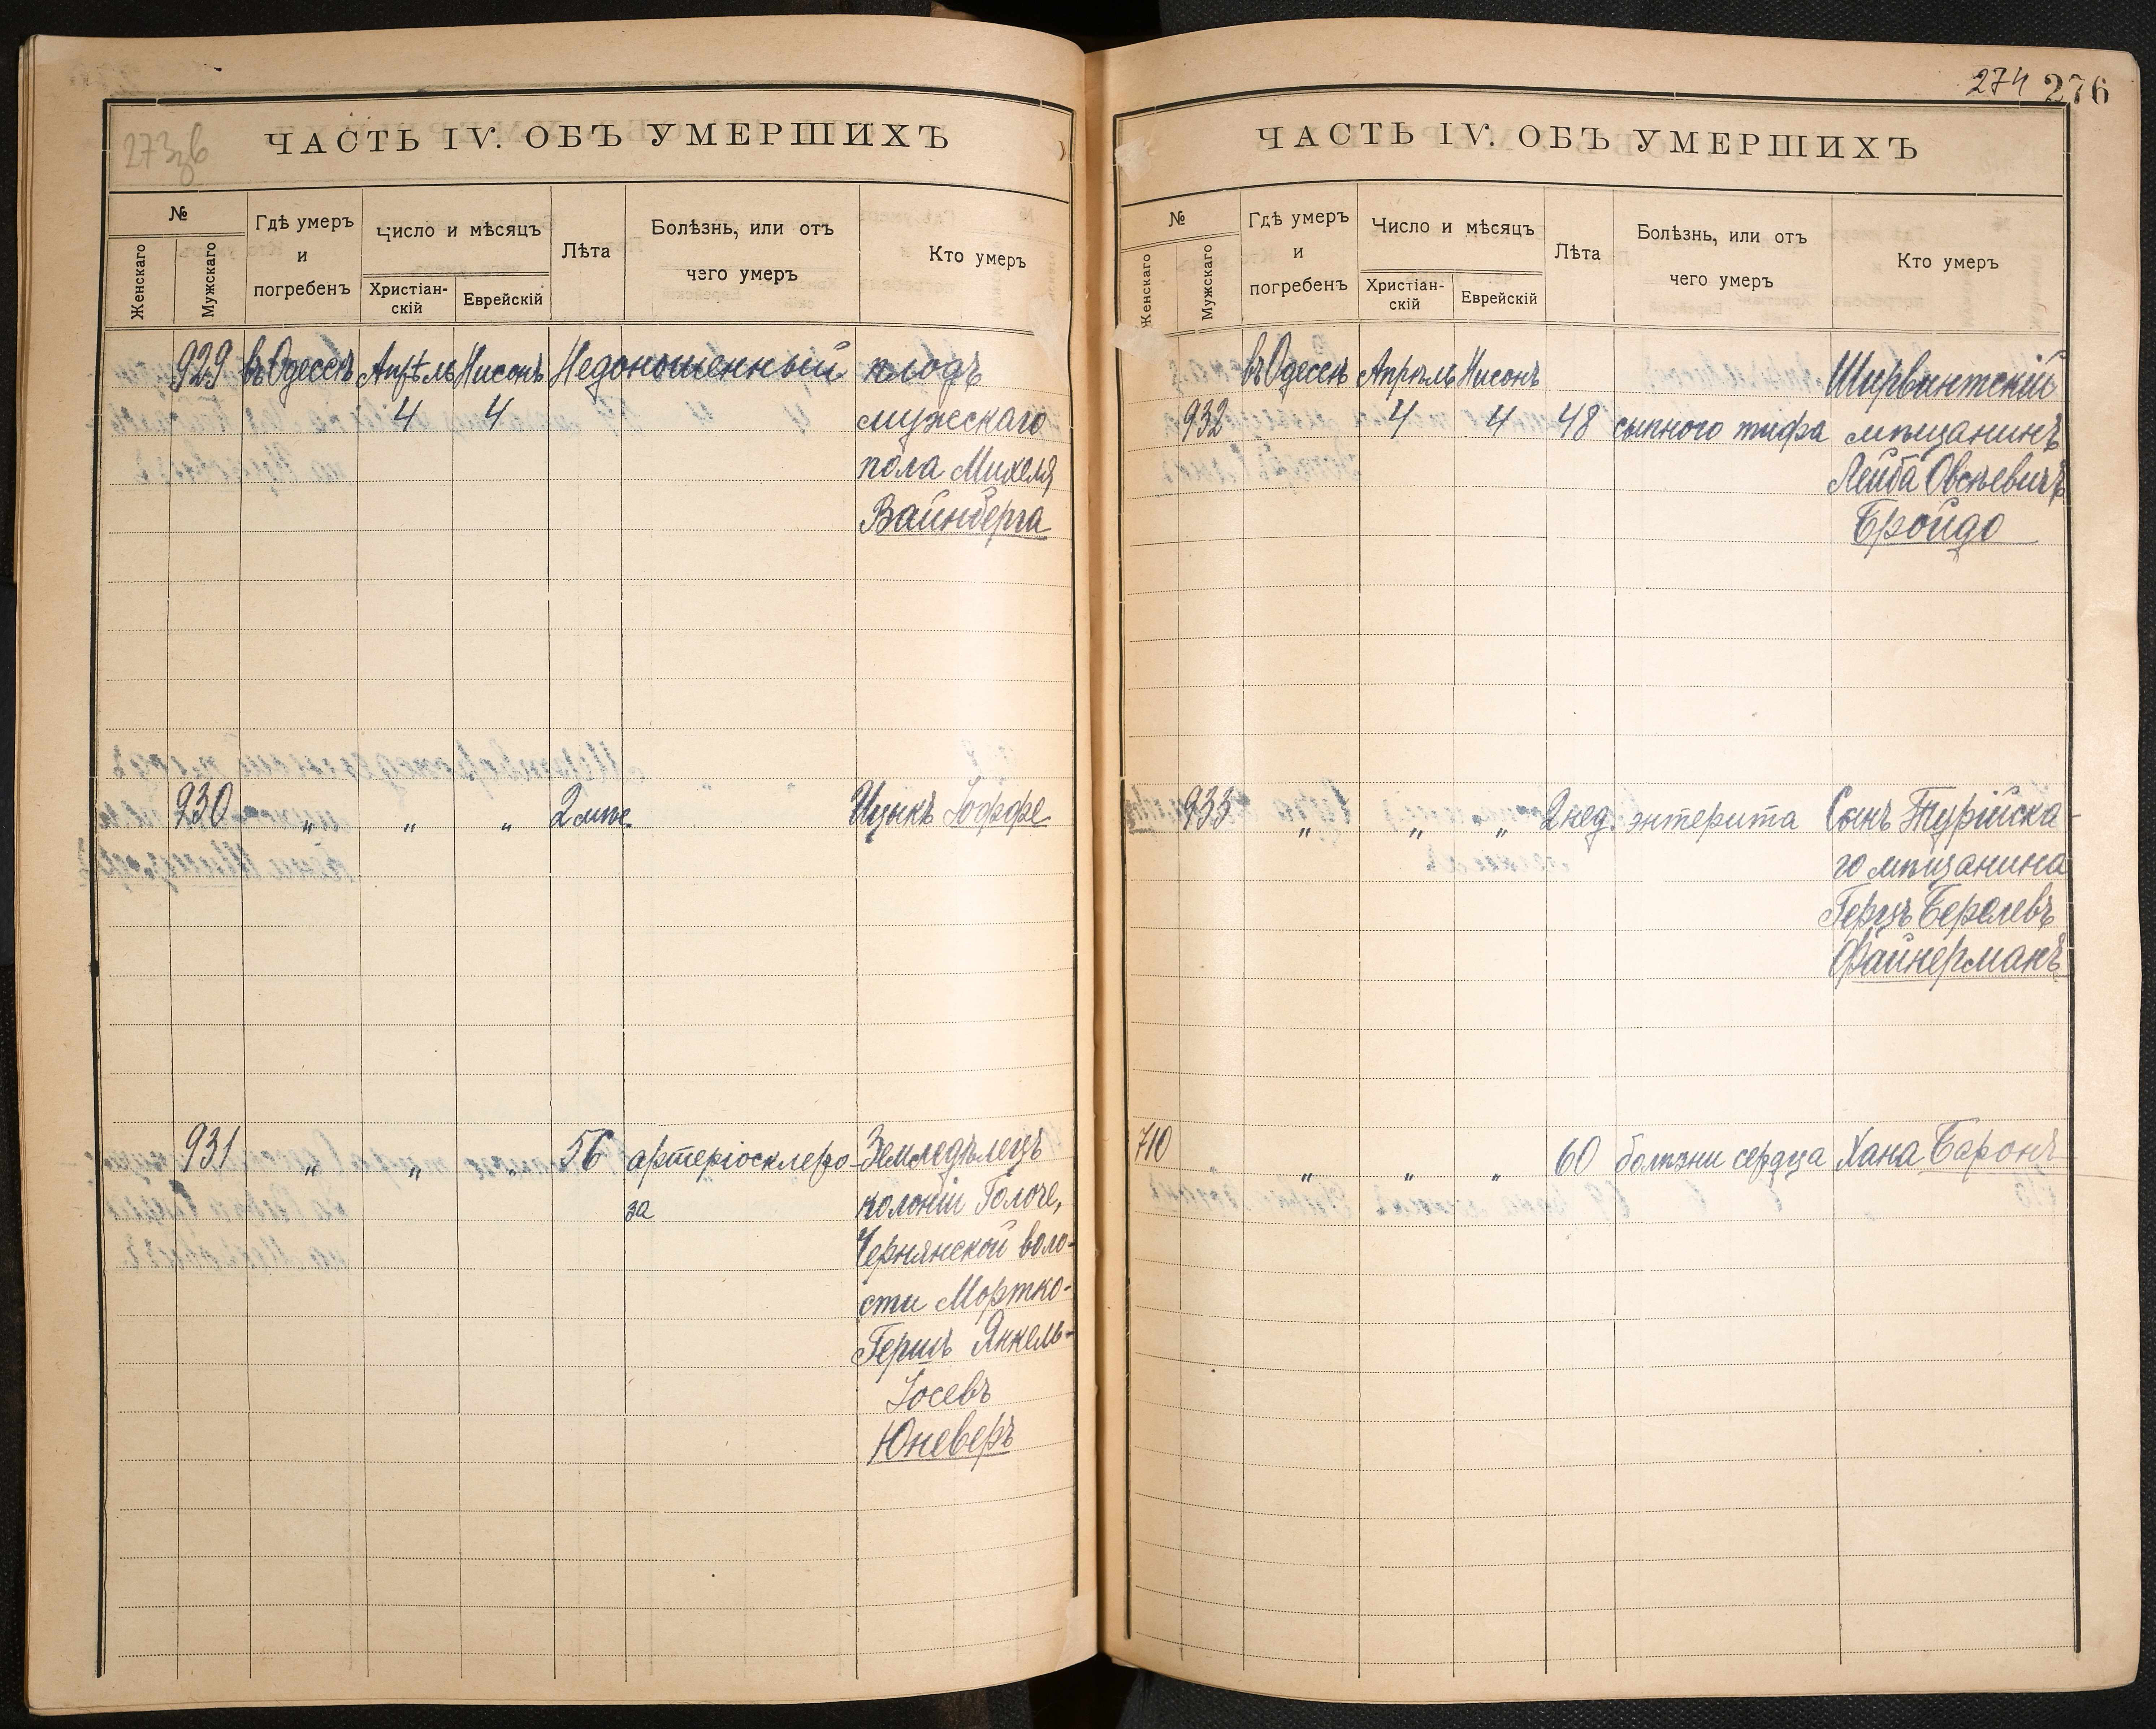 273зв
ЧАСТЬ IV. ОБЪ УМЕРШИХЪ
№
Женскаго
Мужскаго
Гдѣ умеръ
и
погребенъ
Число и мѣсяцъ
Христіан-
скій
Еврейскій
Лѣта
Болѣзнь, или отъ
чего умеръ
Кто умеръ
929 въ Одессѣ Апрѣль Нисонъ Недоношенный плодъ
4 4 мужескаго
пола Михеля
Вайнберга
930 „ „ „ 2 Ицыкъ Іоффе
931 „ „ „ 56 артеріосклеро- Земледѣлецъ
за колоніи
Чернянской воло-
сти Мортко-
Гершъ Янкель-
Іосевъ
Юневеръ
274 276
ЧАСТЬ IV. ОБЪ УМЕРШИХЪ
№
Женскаго
Мужскаго
Гдѣ умеръ
и
погребенъ
Число и мѣсяцъ
Христіан-
скій
Еврейскій
Лѣта
Болѣзнь, или отъ
чего умеръ
Кто умеръ
въ Одессѣ Апрѣль Нисонъ Ширвинтскій
932 4 4 48 сыпного тифа мѣщанинъ
Лейба Овсѣевичъ
Бройдо
933 „ „ „ 2 нед. энтерита Сынъ Турійска-
го мѣщанина
Герцъ Берелевъ
Файнерманъ
710 „ „ „ 60 болѣзни сердца Хана Баронъ